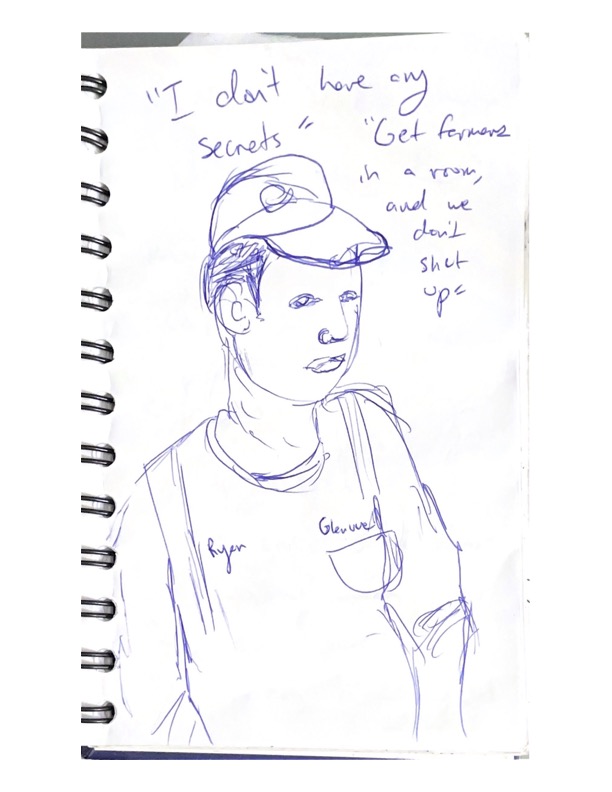 "I don't have any
secrets"
"Get farmers
in a room,
and we
don't
shut
up"
Ryan